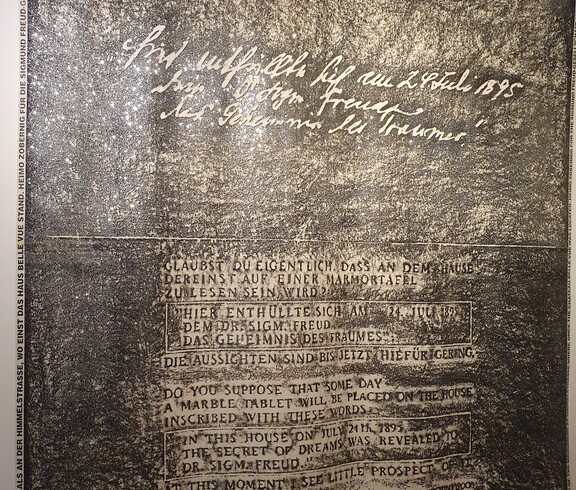 „Hier enthüllte sich am 24. Juli 1895
dem Dr. Sigm. Freud
das Geheimnis des Traumes."
GLAUBST DU EIGENTLICH, DASS AN DEM HAUSE
DEREINST AUF EINER MARMORTAFEL
ZU LESEN SEIN WIRD?
"HIER ENTHÜLLTE SICH AM 24. JULI 1895
DEM DR. SIGM. FREUD
DAS GEHEIMNIS DES TRAUMES"
DIE AUSSICHTEN SIND BIS JETZT HIEFÜR GERING.
DO YOU SUPPOSE THAT SOME DAY
A MARBLE TABLET WILL BE PLACED ON THE HOUSE
INSCRIBED WITH THESE WORDS:
"IN THIS HOUSE ON JULY 24th, 1895
THE SECRET OF DREAMS WAS REVEALED TO
DR. SIGM. FREUD."
AT THIS MOMENT I SEE LITTLE PROSPECT OF IT.
ALS AN DER HIMMELSTRASSE, WO EINST DAS HAUS BELLE VUE STAND. HEIMO ZOBERNIG FÜR DIE SIGMUND FREUD-G